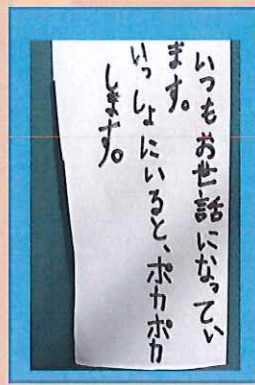 いつもお世話になってい
ます。
いっしょにいると、ポカポカ
します。